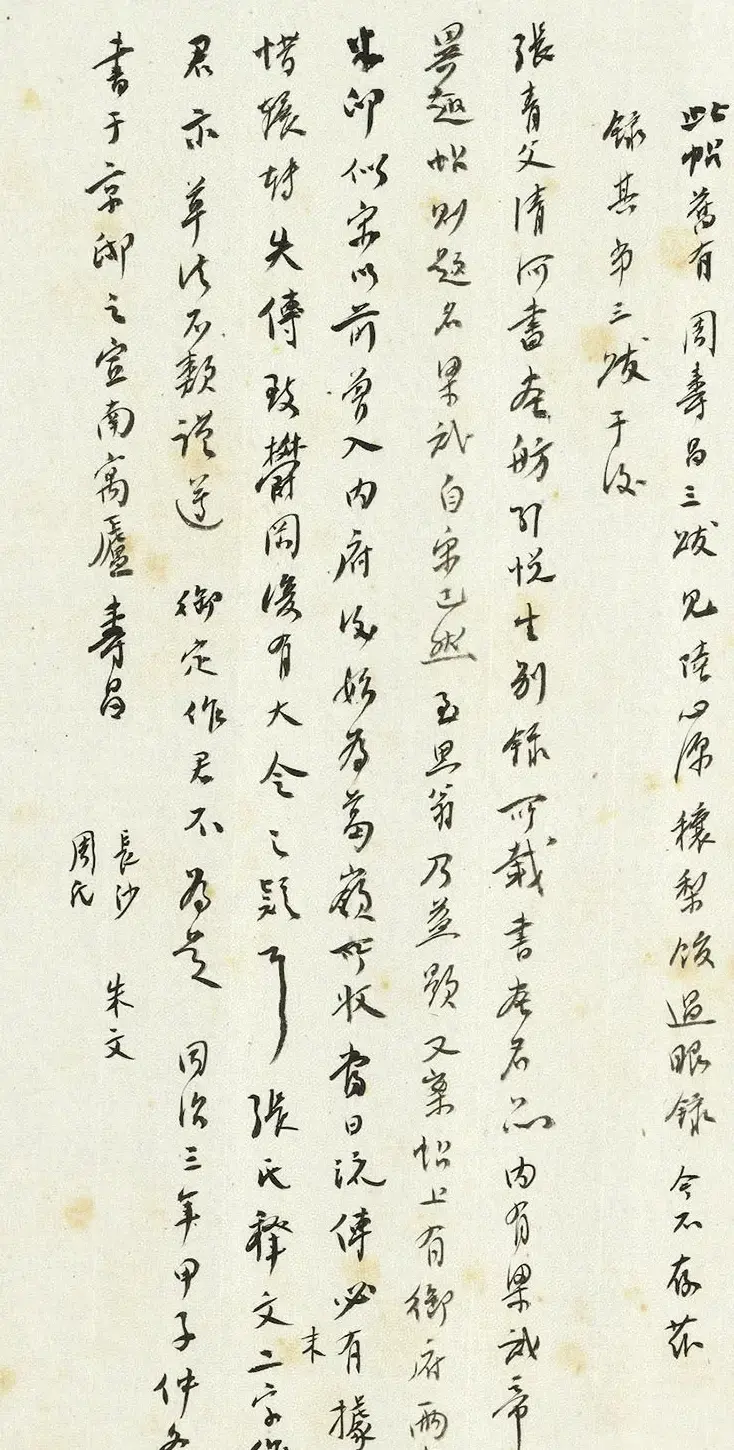 此帖舊有周壽昌三跋見陸心源穰梨館過眼錄今不存茲
錄其第三跋于後
張青父清河書畫舫引悅生別錄所載書畫名品內有梁武帝
異趣帖則題名梁武自宋已然至思翁乃並題又案帖上有御府兩
朱印似宋以前曾入內府後始為葛嶺所收當日流傳必有據
惜張時失傳致鬱岡復有大令之疑耳張氏釋文二字作
未
君亦草法不類謹遵御定作君不為是同治三年甲子仲冬
書于京邸之宣南寓廬壽昌
長沙
周氏
朱文